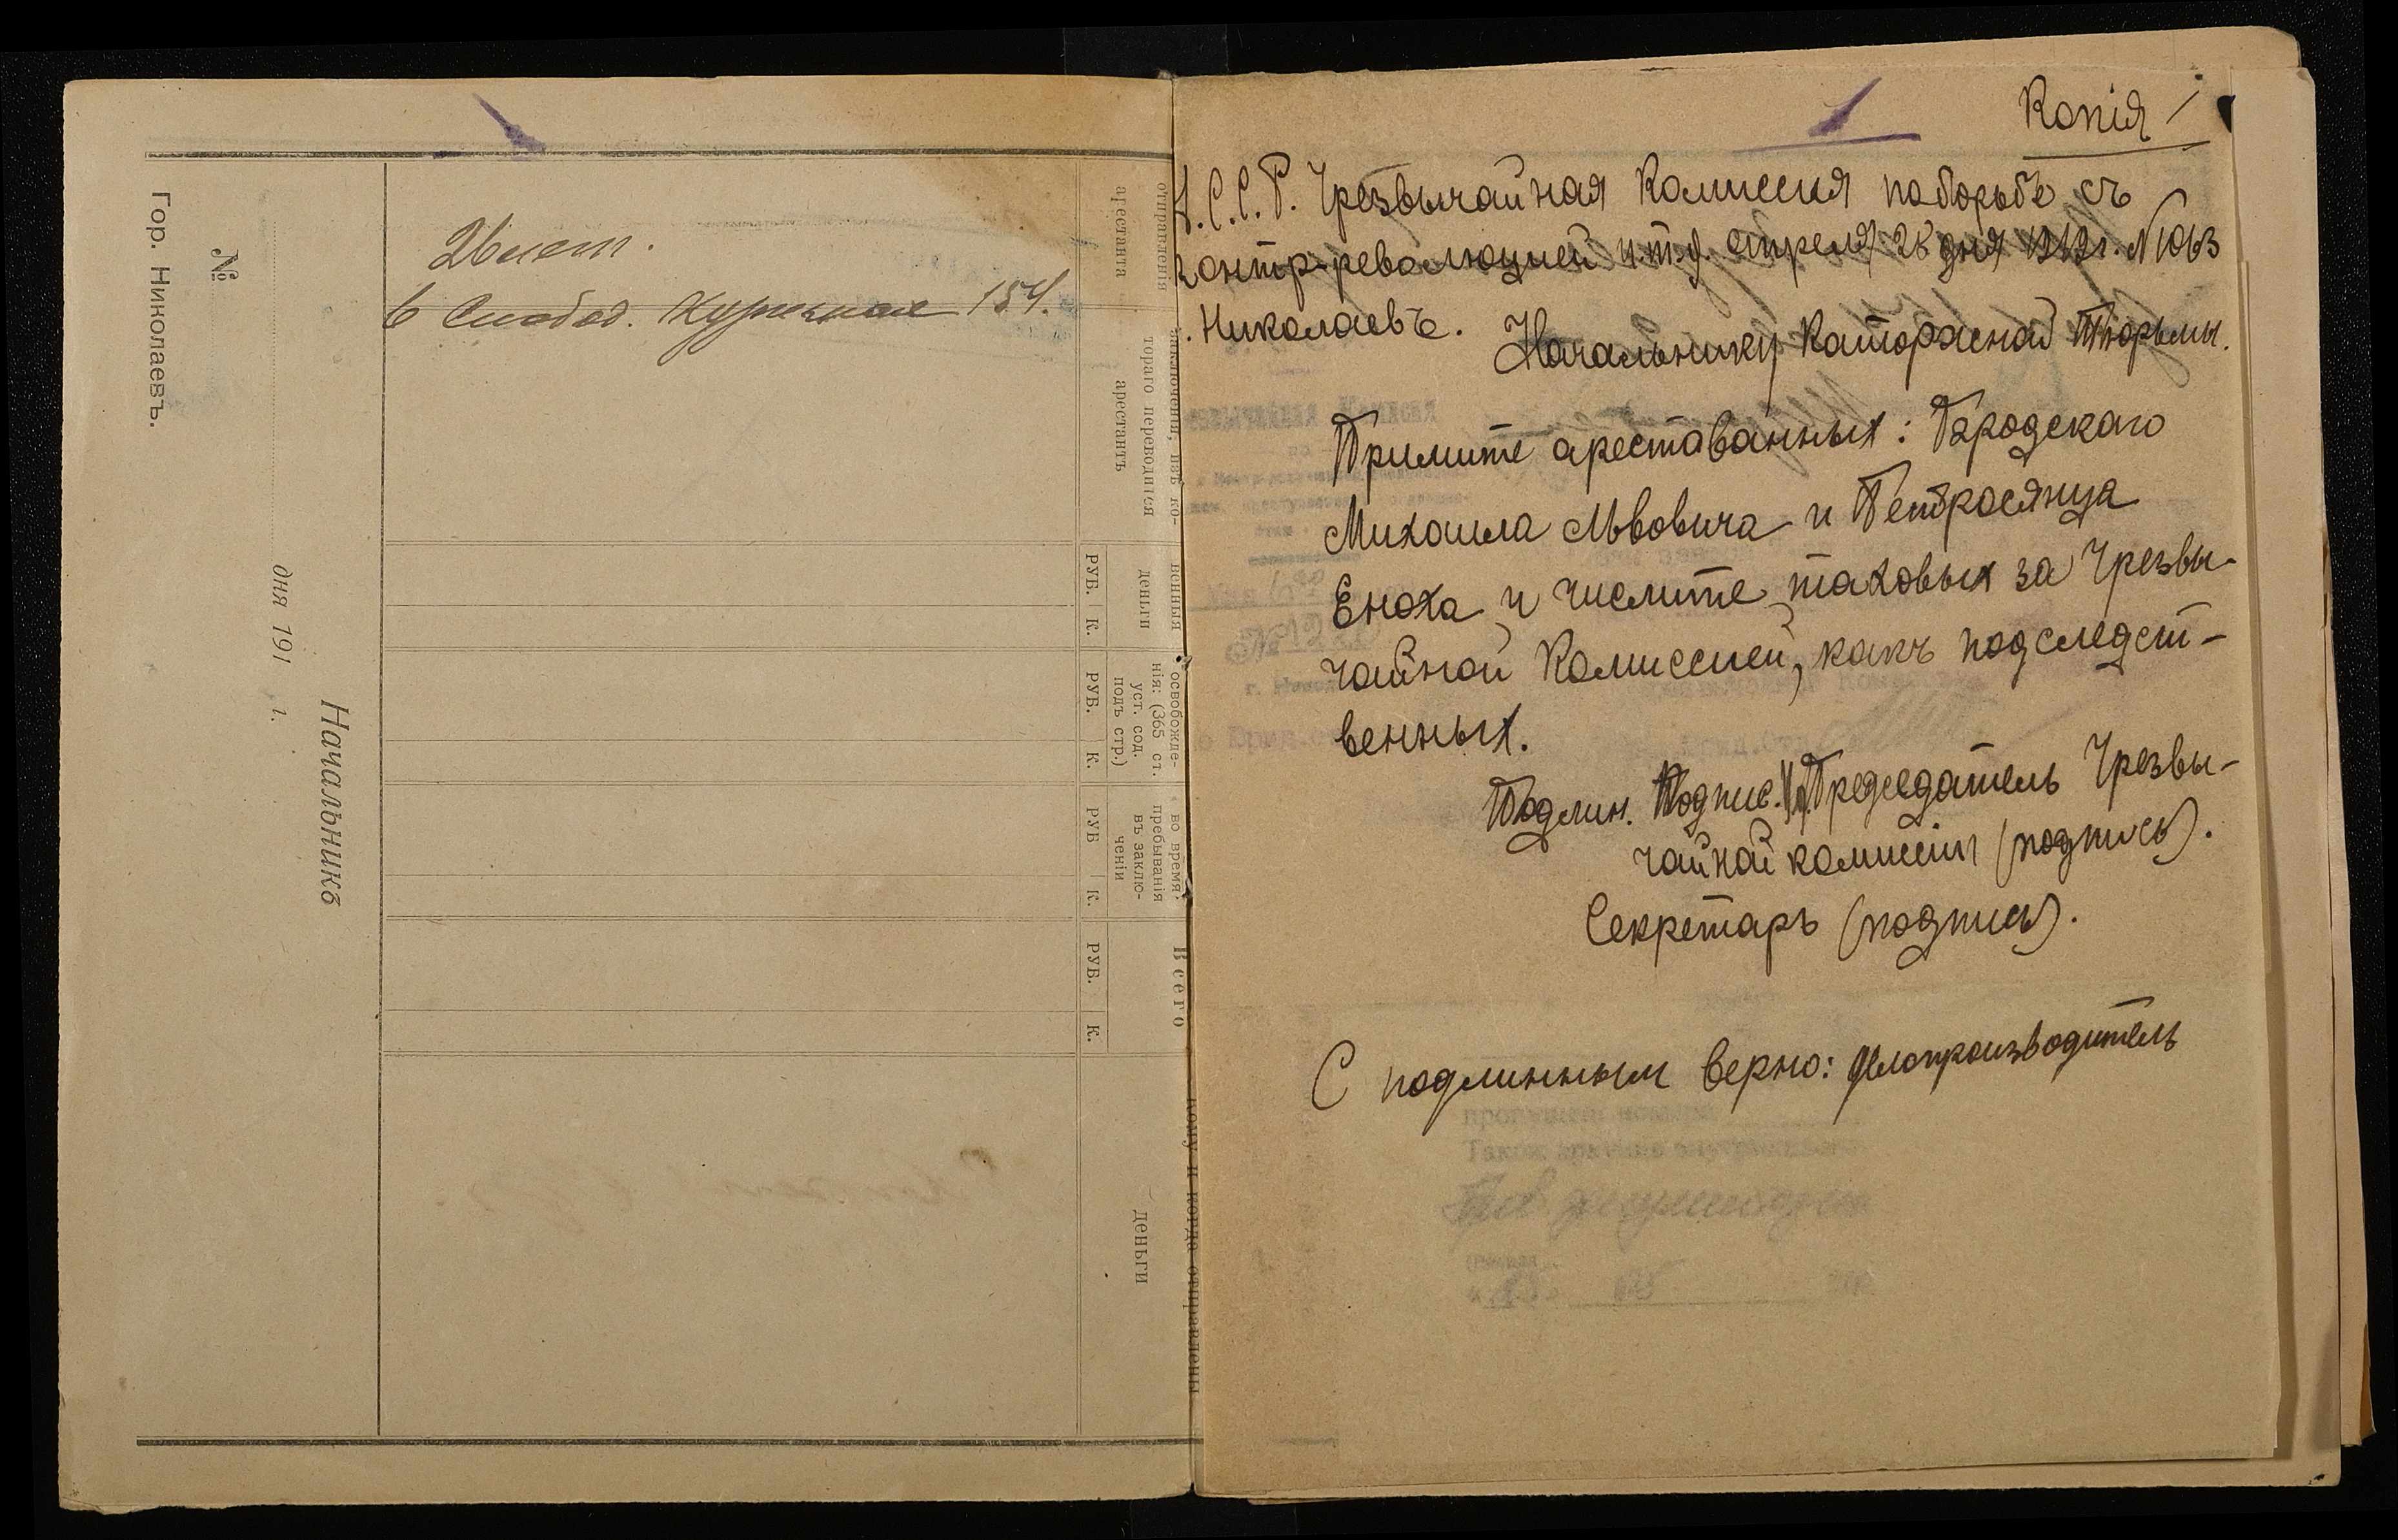 Гор. Николаевъ.
№
дня 191 г.
Начальникъ
6 Слобод. 154.
отправленія
арестанта
заключенія, изъ ко-
тораго переводится
арестантъ
деньги
РУБ. К.
освобожде-
нія: (365 ст.
уст. сод.
подъ стр.)
РУБ. К.
во время
пребыванія
въ заклю-
ченіи
РУБ К.
Всего
РУБ. К.
кому и когда отправлены
деньги
1
Копія
С.С.Р. Чрезвычайная Комиссия по борьбѣ съ
контр-революцией и т.д. апреля 28 дня 1919 г. № 1063
Николаевъ.
Начальнику Каторжной Тюрьмы.
Примите арестованных: Городскаго
Михаила Львовича и Петросянца
Еноха и числите таковых за Чрезвы-
чайной Комиссией, какъ подследст-
венных.
Подлин. Подпис. Председатель Чрезвы-
чайной комиссіи (подпись).
Секретарь (подпись).
С подлинным верно: Делопроизводитель